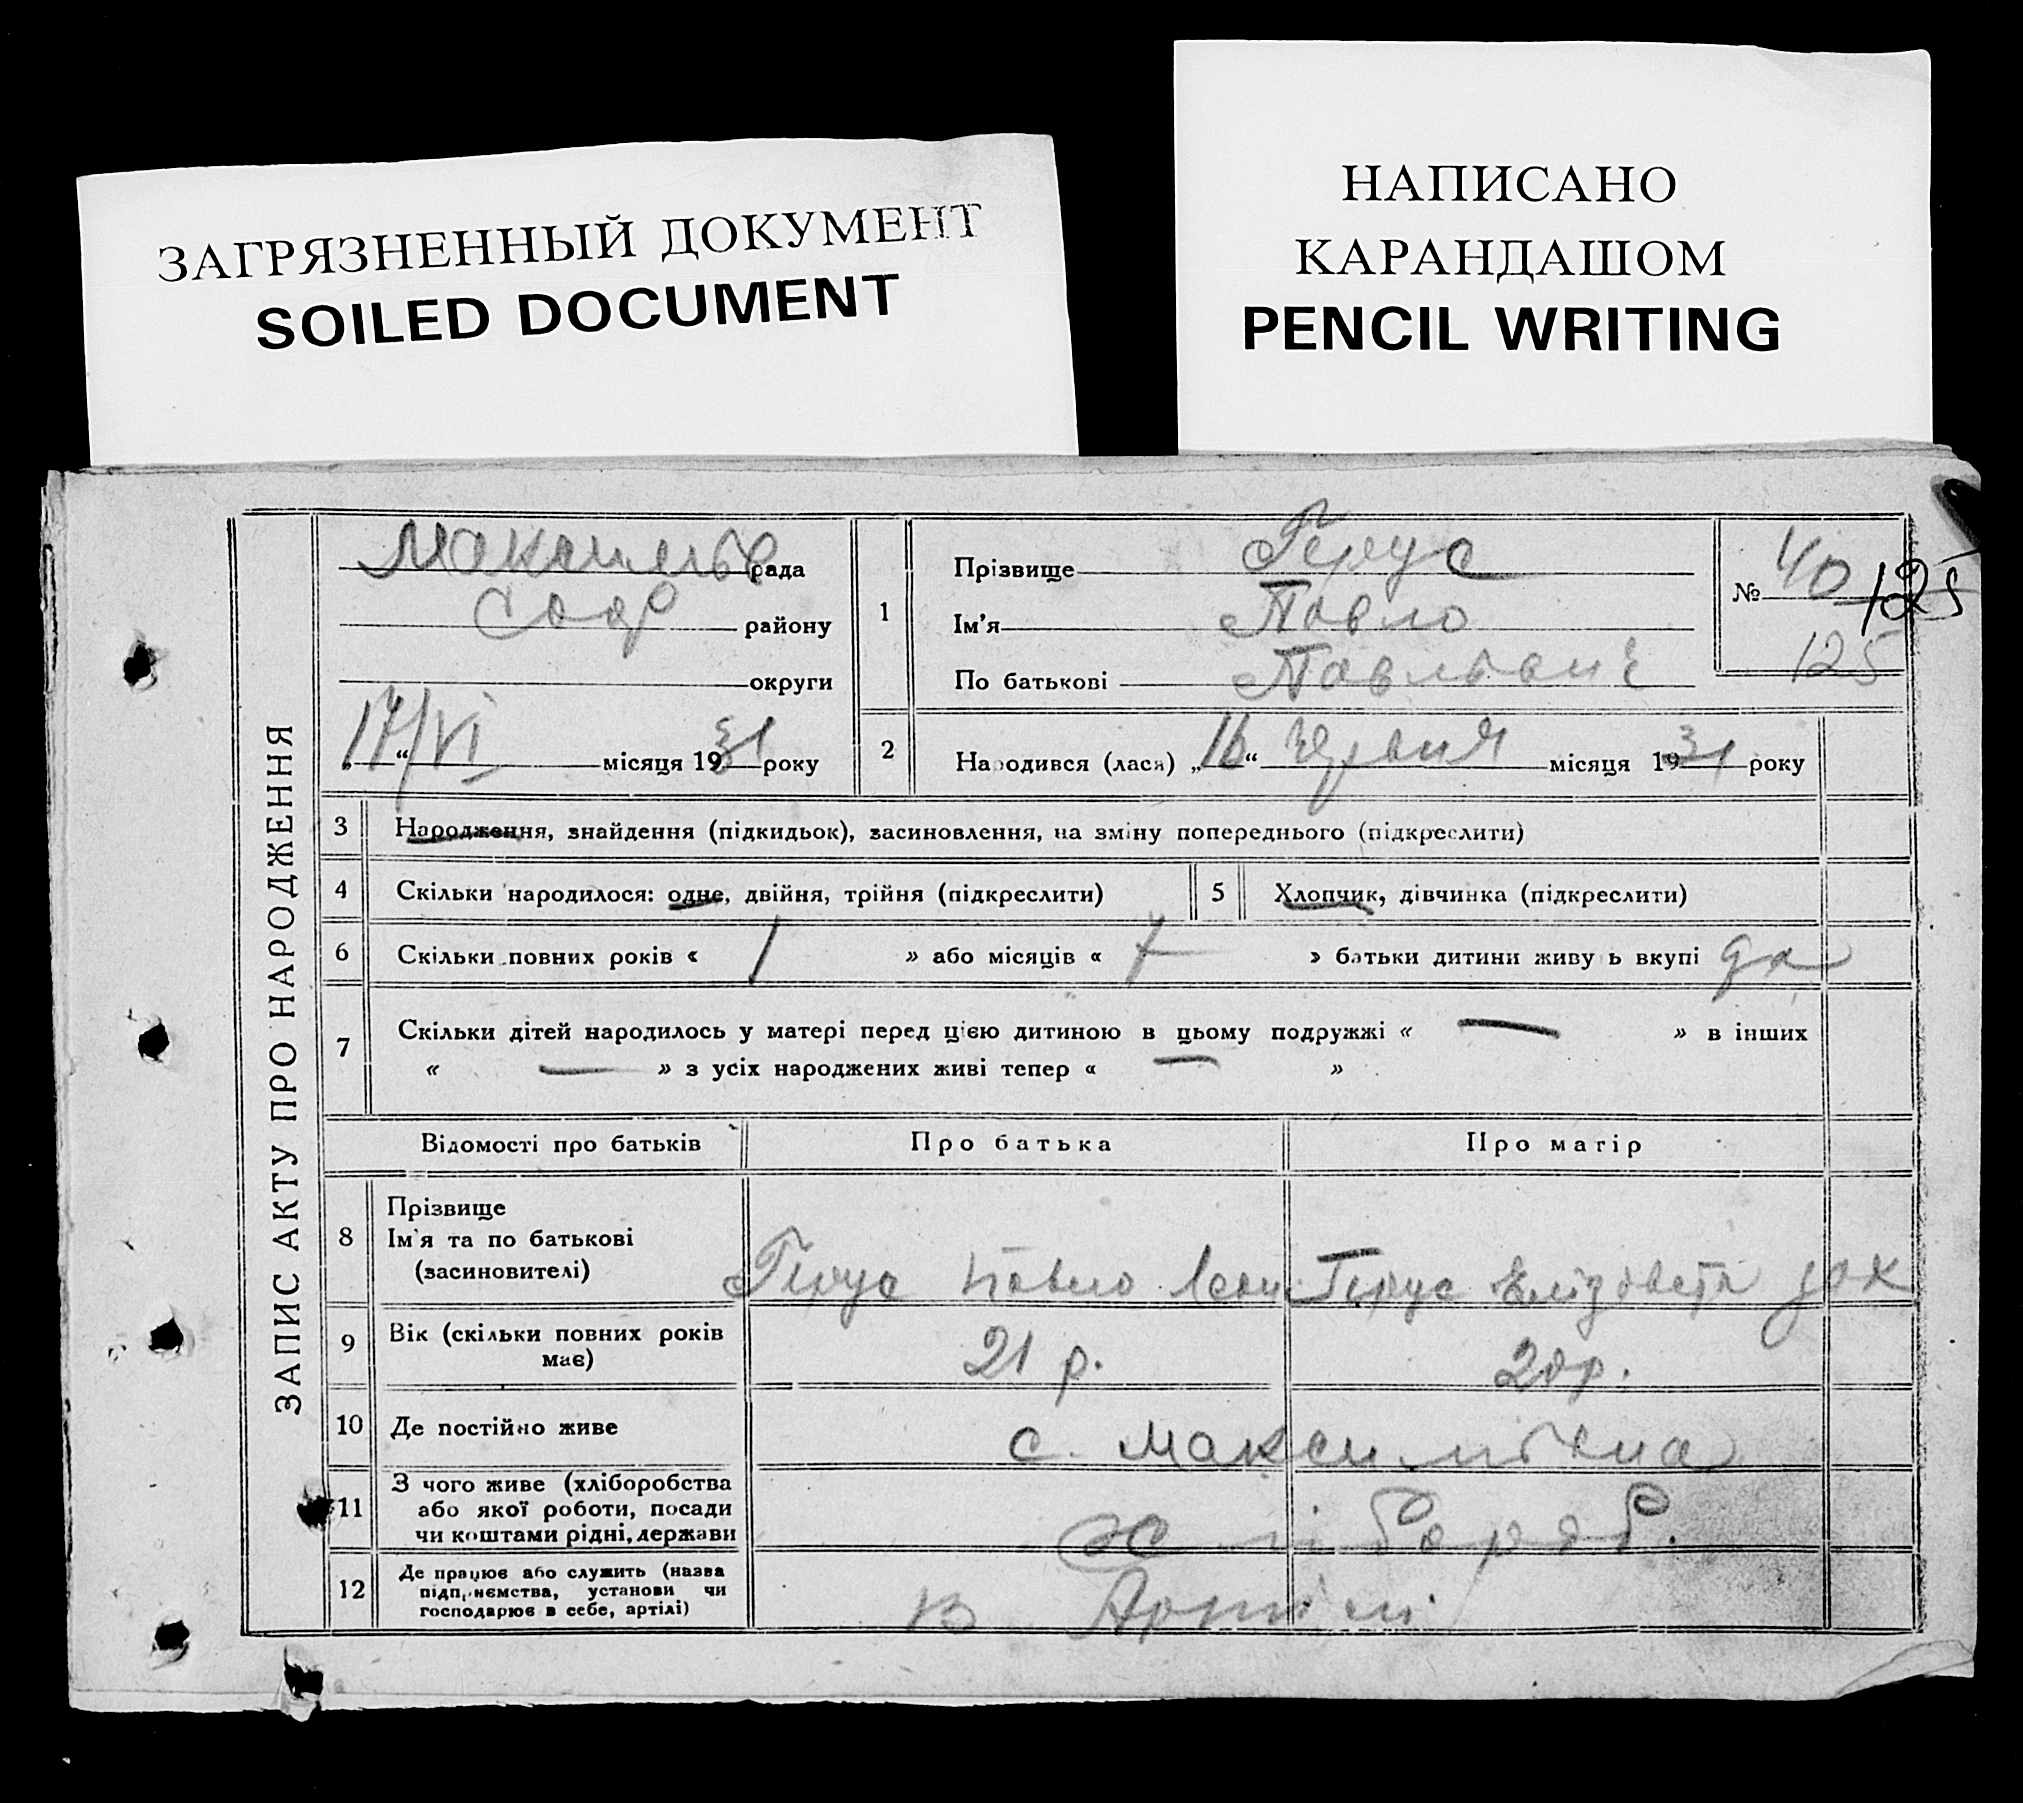 ЗАГРЯЗНЕННЫЙ ДОКУМЕНТ
SOILED DOCUMENT
НАПИСАНО
КАРАНДАШОМ
PENCIL WRITING
ЗАПИС АКТУ ПРО НАРОДЖЕННЯ
рада
району
округи
17/VI місяця 1931 року
1
Прізвище Герус
Ім'я Павло
По батькові Павлович
№ 40 125
125
2
Народився (лася) „16“ червня місяця 1931 року
3 Народження, знайдення (підкидьок), засиновлення, на зміну попереднього (підкреслити)
4 Скільки народилося: одне, двійня, трійня (підкреслити) 5 Хлопчик, дівчинка (підкреслити)
6 Скільки повних років « 1 » або місяців « » батьки дитини живуть вкупі да
7 Скільки дітей народилось у матері перед цією дитиною в цьому подружжі « — » в інших
« — » з усіх народжених живі тепер « — »
Відомості про батьків Про батька Про матір
8 Прізвище
Ім'я та по батькові
(засиновителі)
Герус Павло Герус Елізовета
9 Вік (скільки повних років
має)
21 р. 20 р.
10 Де постійно живе с.
11 З чого живе (хліборобства
або якої роботи, посади
чи коштами рідні, держави
хлібороб.
12 Де працює або служить (назва
підприємства, установи чи
господарює в себе, артілі)
в Артілі